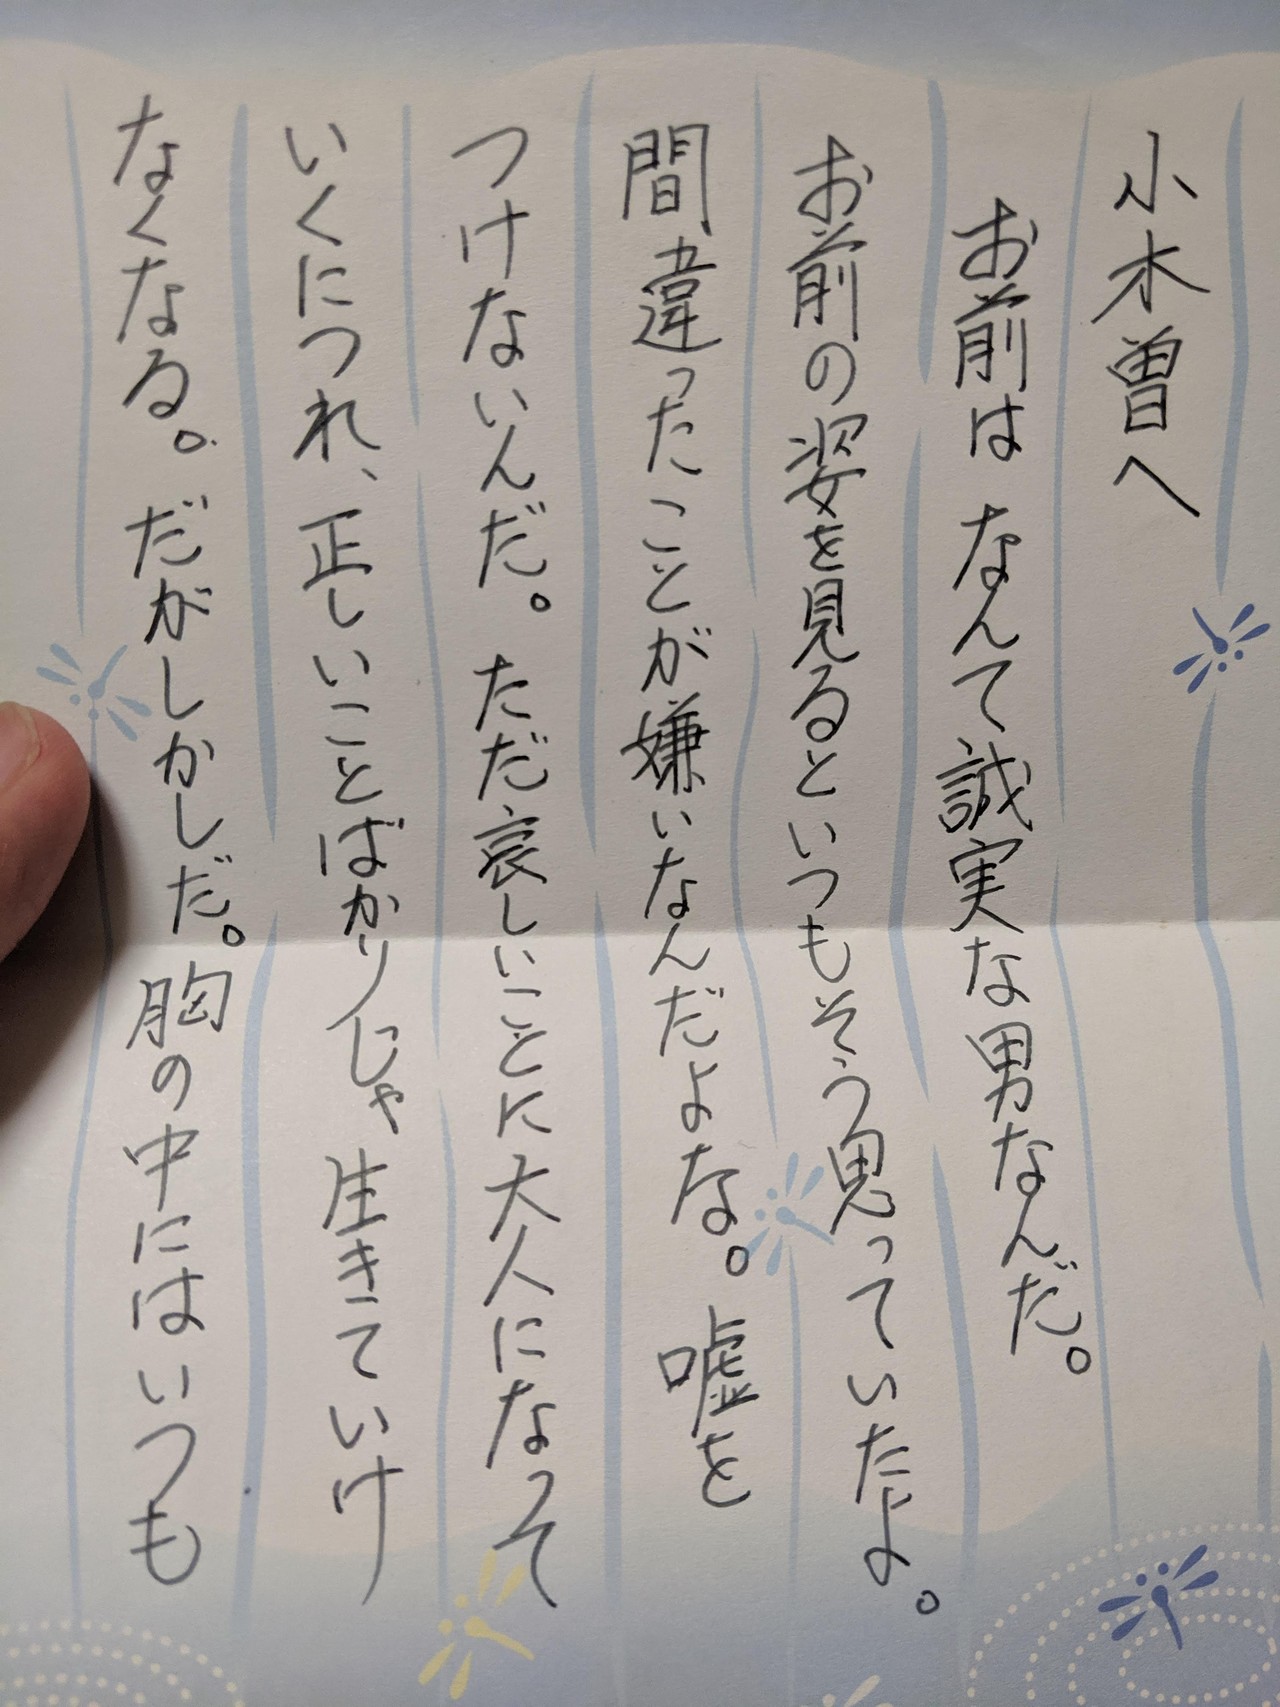 小木曽へ
お前はなんて誠実な男なんだ。
お前の姿を見るといつもそう思っていたよ。
間違ったことが嫌いなんだよな。嘘を
つけないんだ。ただ哀しいことに大人になって
いくにつれ、正しいことばかりじゃ生きていけ
なくなる。だがしかしだ。胸の中にはいつも